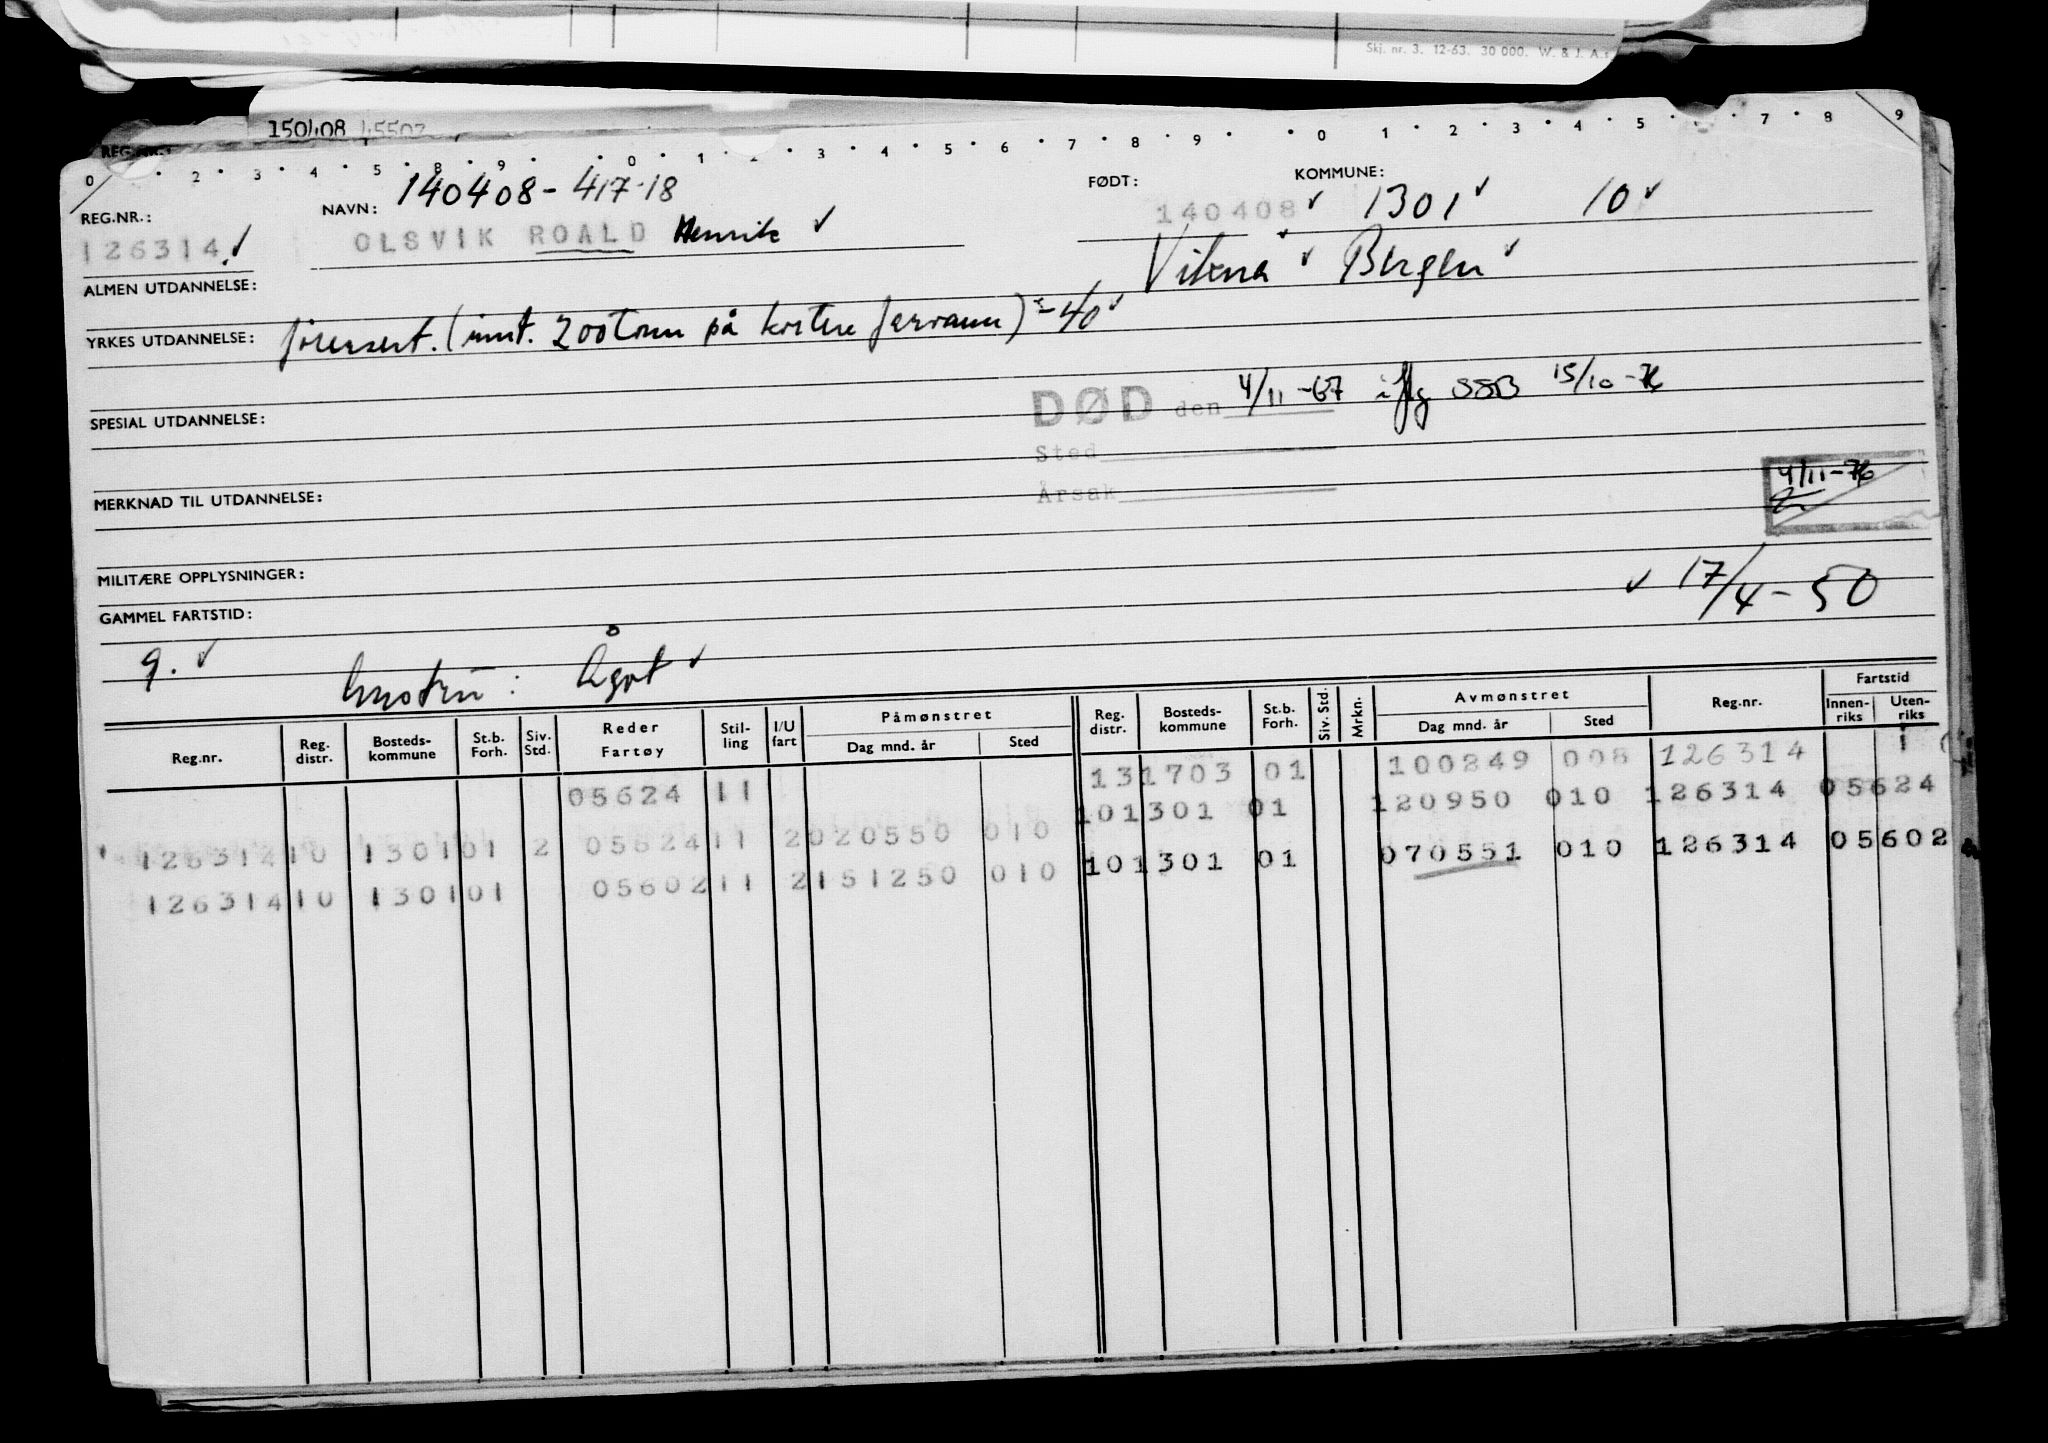 Skj. nr. 3. 12-63. 30 000. W. & J. A.s
150408 45502
REG.NR.:
0 • 2 • 3 • 4 • 5 • 8 • 9 • • 0 • 1 • 2 • 3 • 4 • 5 • 6 • 7 • 8 • 9 • • 0 • 1 • 2 • 3 • 4 • 5 • • 7 • 8 9
140408-417-18
REG.NR.: NAVN: FØDT: KOMMUNE:
126314 ✓ OLSVIK ROALD Henrik ✓ 140408 ✓ 1301 ✓ 10 ✓
ALMEN UTDANNELSE: ✓ Bergen ✓
YRKES UTDANNELSE: (innt. 200 tonn på kortere farvann) - 40 ✓
DØD den 4/11-67 iflg SSB 15/10-76
SPESIAL UTDANNELSE:
Sted
4/11-76
MERKNAD TIL UTDANNELSE: Årsak
MILITÆRE OPPLYSNINGER: ✓ 17/4-50
GAMMEL FARTSTID:
g. ✓ hustru: Ågot ✓
Reg.nr. Reg. distr. Bosteds-kommune St.b. Forh. Siv. Std. Reder Fartøy Stil-ling I/U fart Påmønstret Dag mnd. år Sted Reg. distr. Bosteds-kommune St.b. Forh. Siv. Std. Mrkn. Avmønstret Dag mnd. år Sted Reg.nr. Fartstid Innen-riks Uten-riks
05624 11 131703 01 100249 008 126314 1
12631410 130101 2 0562411 2020550 010 101301 01 120950 010 126314 05624
12631410 130101 0560211 2151250 010 101301 01 070551 010 126314 05602